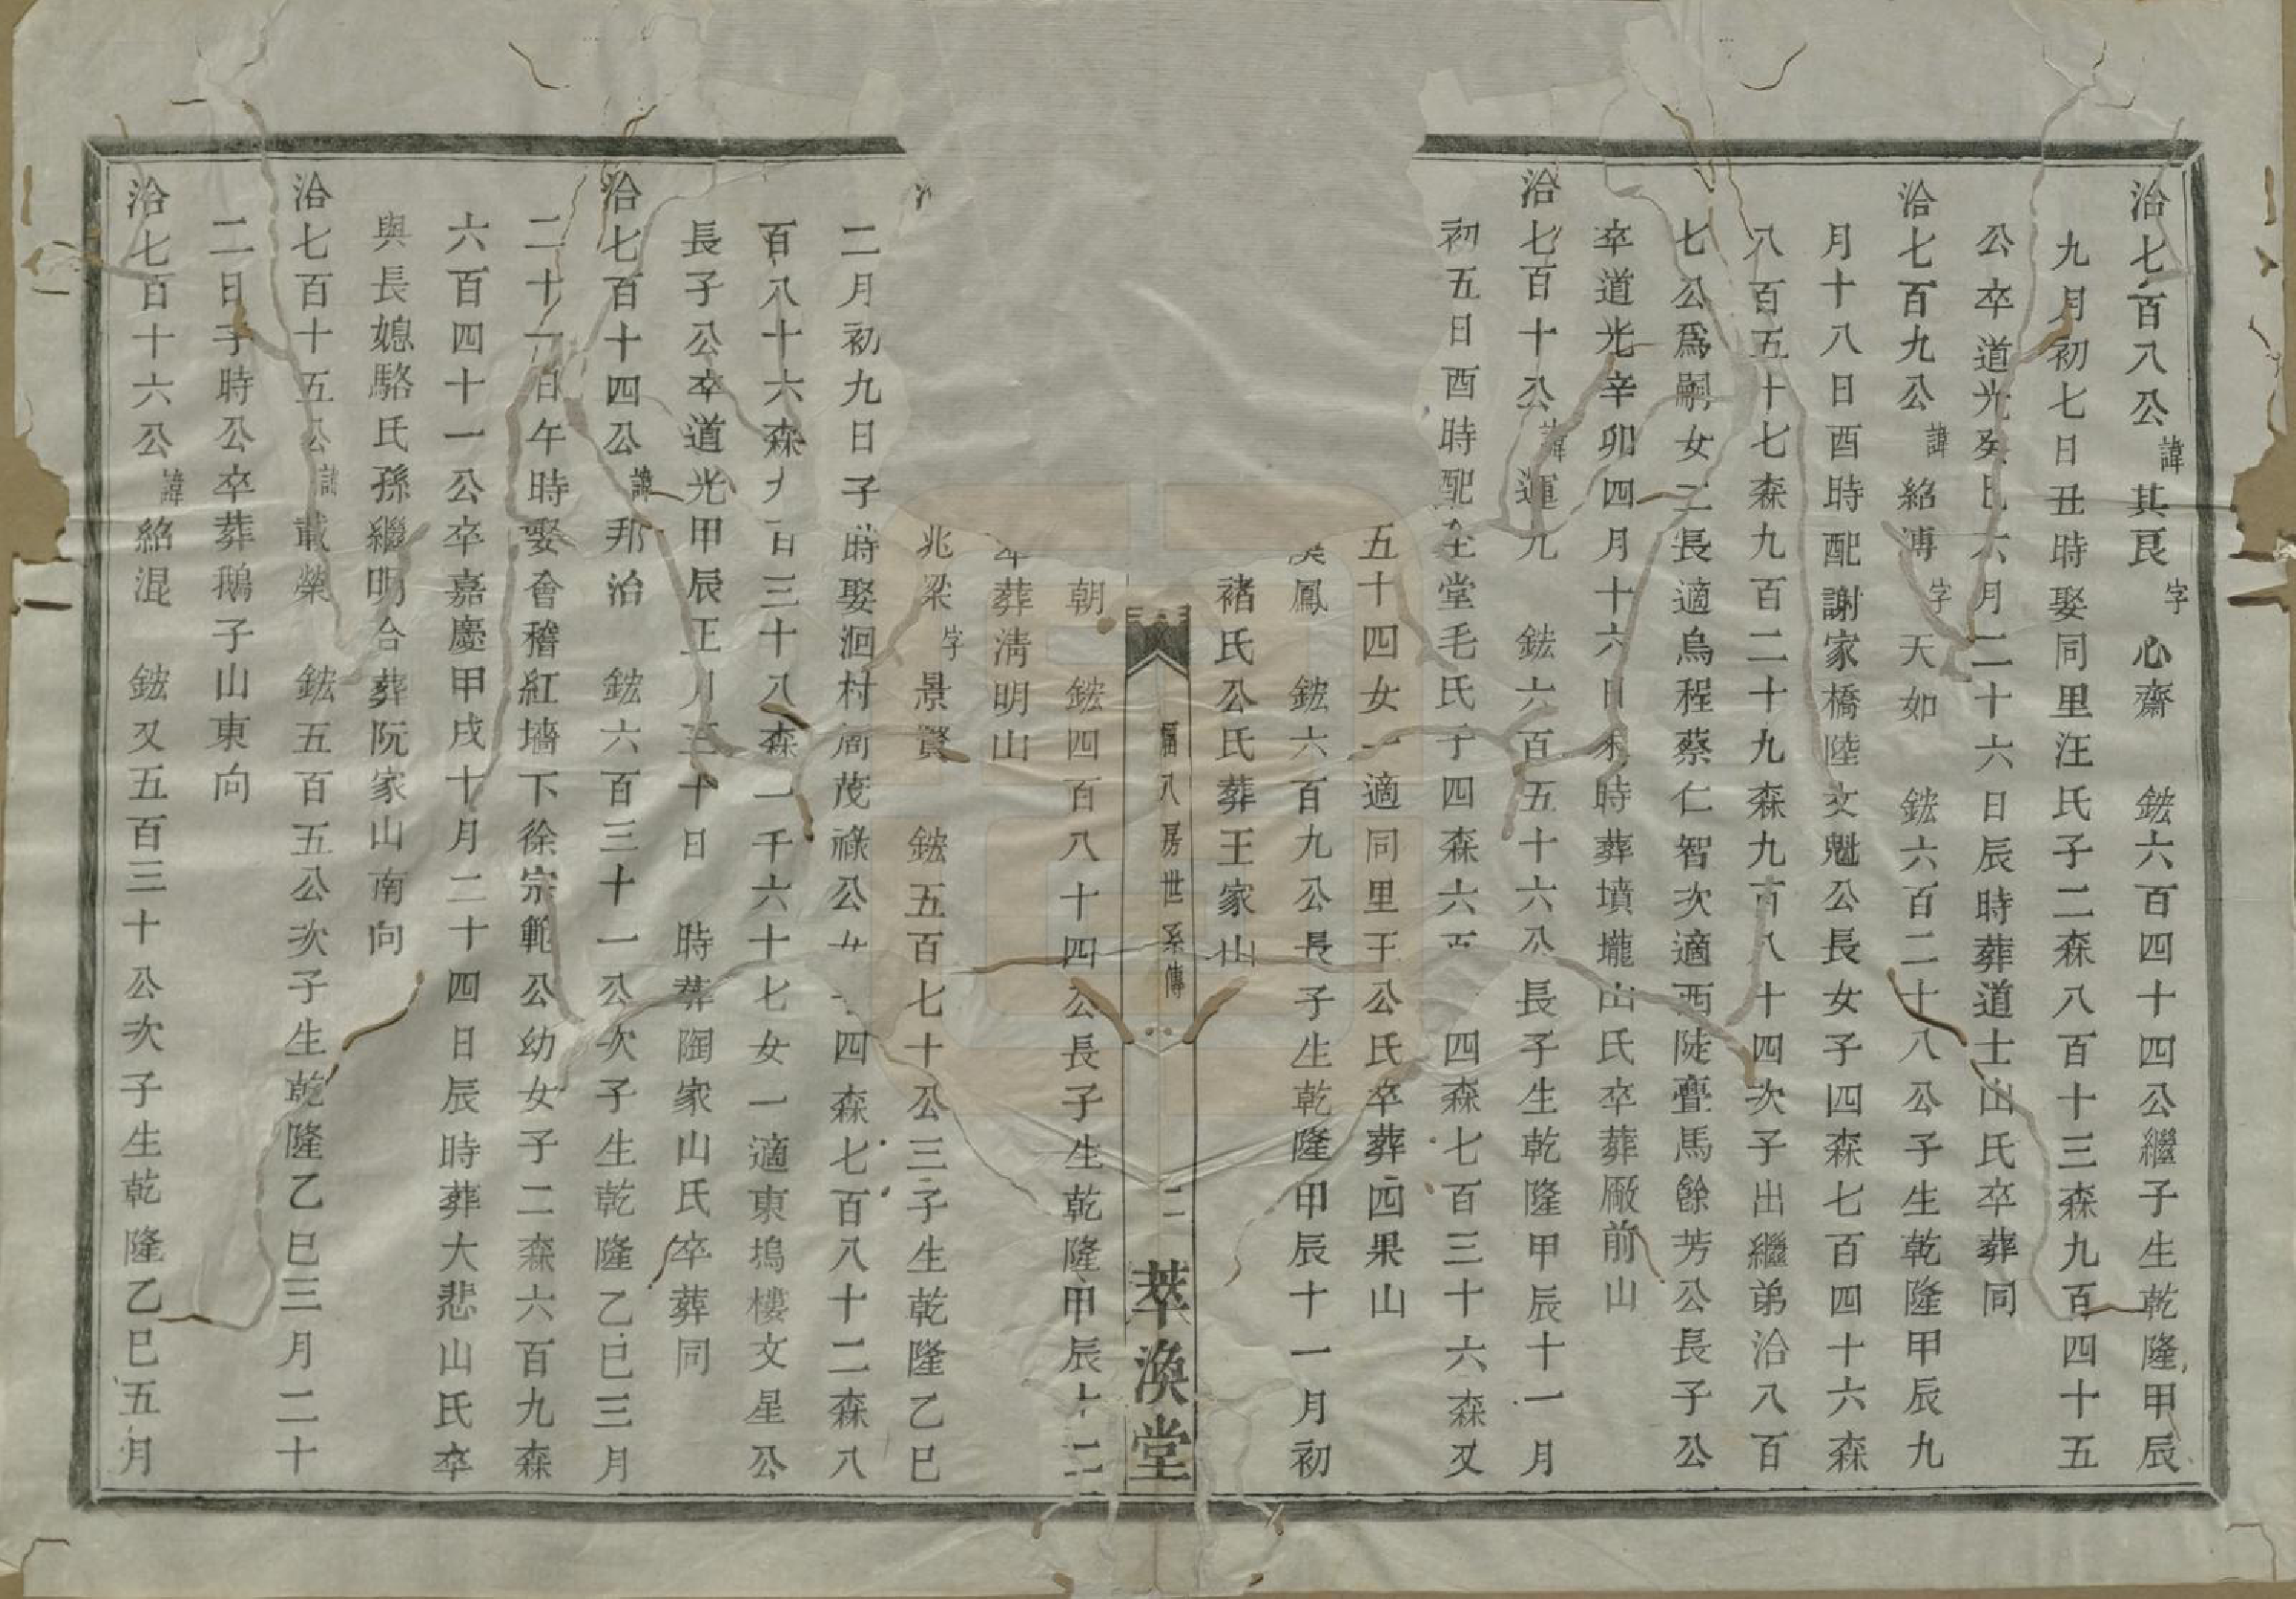 洽七百八公諱其艮字心齋 鈜六百四十四公繼子生乾隆甲辰
九月初七日丑時娶同里汪氏子二森八百十三森九百四十五
公卒道光癸巳六月二十六日辰時葬道士山氏卒葬同
洽七百九公諱紹溥字天如 鈜六百二十八公子生乾隆甲辰九
月十八日酉時配謝家橋陸文魁公長女子四森七百四十六森
八百五十七森九百二十九森九百八十四次子出繼弟洽八百
七公爲嗣女二長適烏程蔡仁智次適西陡亹馬餘芳公長子公
卒道光辛卯四月十六日未時葬墳壠山氏卒葬厰前山
洽七百十公諱運九 鈜六百五十六公長子生乾隆甲辰十一月
初五日酉時配全堂毛氏子四森六百 四森七百三十六森又
五十四女一適同里王公氏卒葬四果山
鳳 鈜六百九公長子生乾隆甲辰十一月初
褚氏公氏葬王家山
福八房世系傳 二 萃渙堂
朝 鈜四百八十四公長子生乾隆甲辰十二
卒葬淸明山
兆梁字景賢 鈜五百七十公三子生乾隆乙巳
二月初九日子時娶洄村周茂祿公女 四森七百八十二森八
百八十六森九百三十八森一千六十七女一適東塢樓文星公
長子公卒道光甲辰正月三十日 時葬陶家山氏卒葬同
洽七百十四公諱邦治 鈜六百三十一公次子生乾隆乙巳三月
二十一日午時娶會稽紅墻下徐宗範公幼女子二森六百九森
六百四十一公卒嘉慶甲戌十月二十四日辰時葬大悲山氏卒
與長媳駱氏孫繼明合葬阮家山南向
洽七百十五公諱載榮 鈜五百五公次子生乾隆乙巳三月二十
二日子時公卒葬鵝子山東向
洽七百十六公諱紹混 鈜又五百三十公次子生乾隆乙巳五月